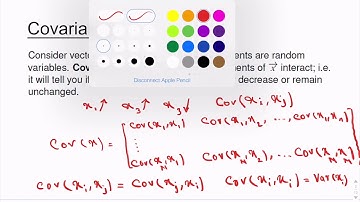 Covaria
Consider vect ents are random
variables. Cov ents of x interact; i.e.
it will tell you if decrease or remain
unchanged.
Disconnect Apple Pencil
x₁↑ x₃↑ x₃↓ Cov(xᵢ,xⱼ)
Cov(x) = [Cov(x₁,x₁) Cov(x₁,x₂), ..., Cov(x₁,xₙ)
⋮
Cov(xₙ,x₁) Cov(xₙ,x₂), ... Cov(xₙ,xₙ)]
Cov(xᵢ,xⱼ) = Cov(xⱼ,xᵢ) Cov(xᵢ,xᵢ) = Var(xᵢ)